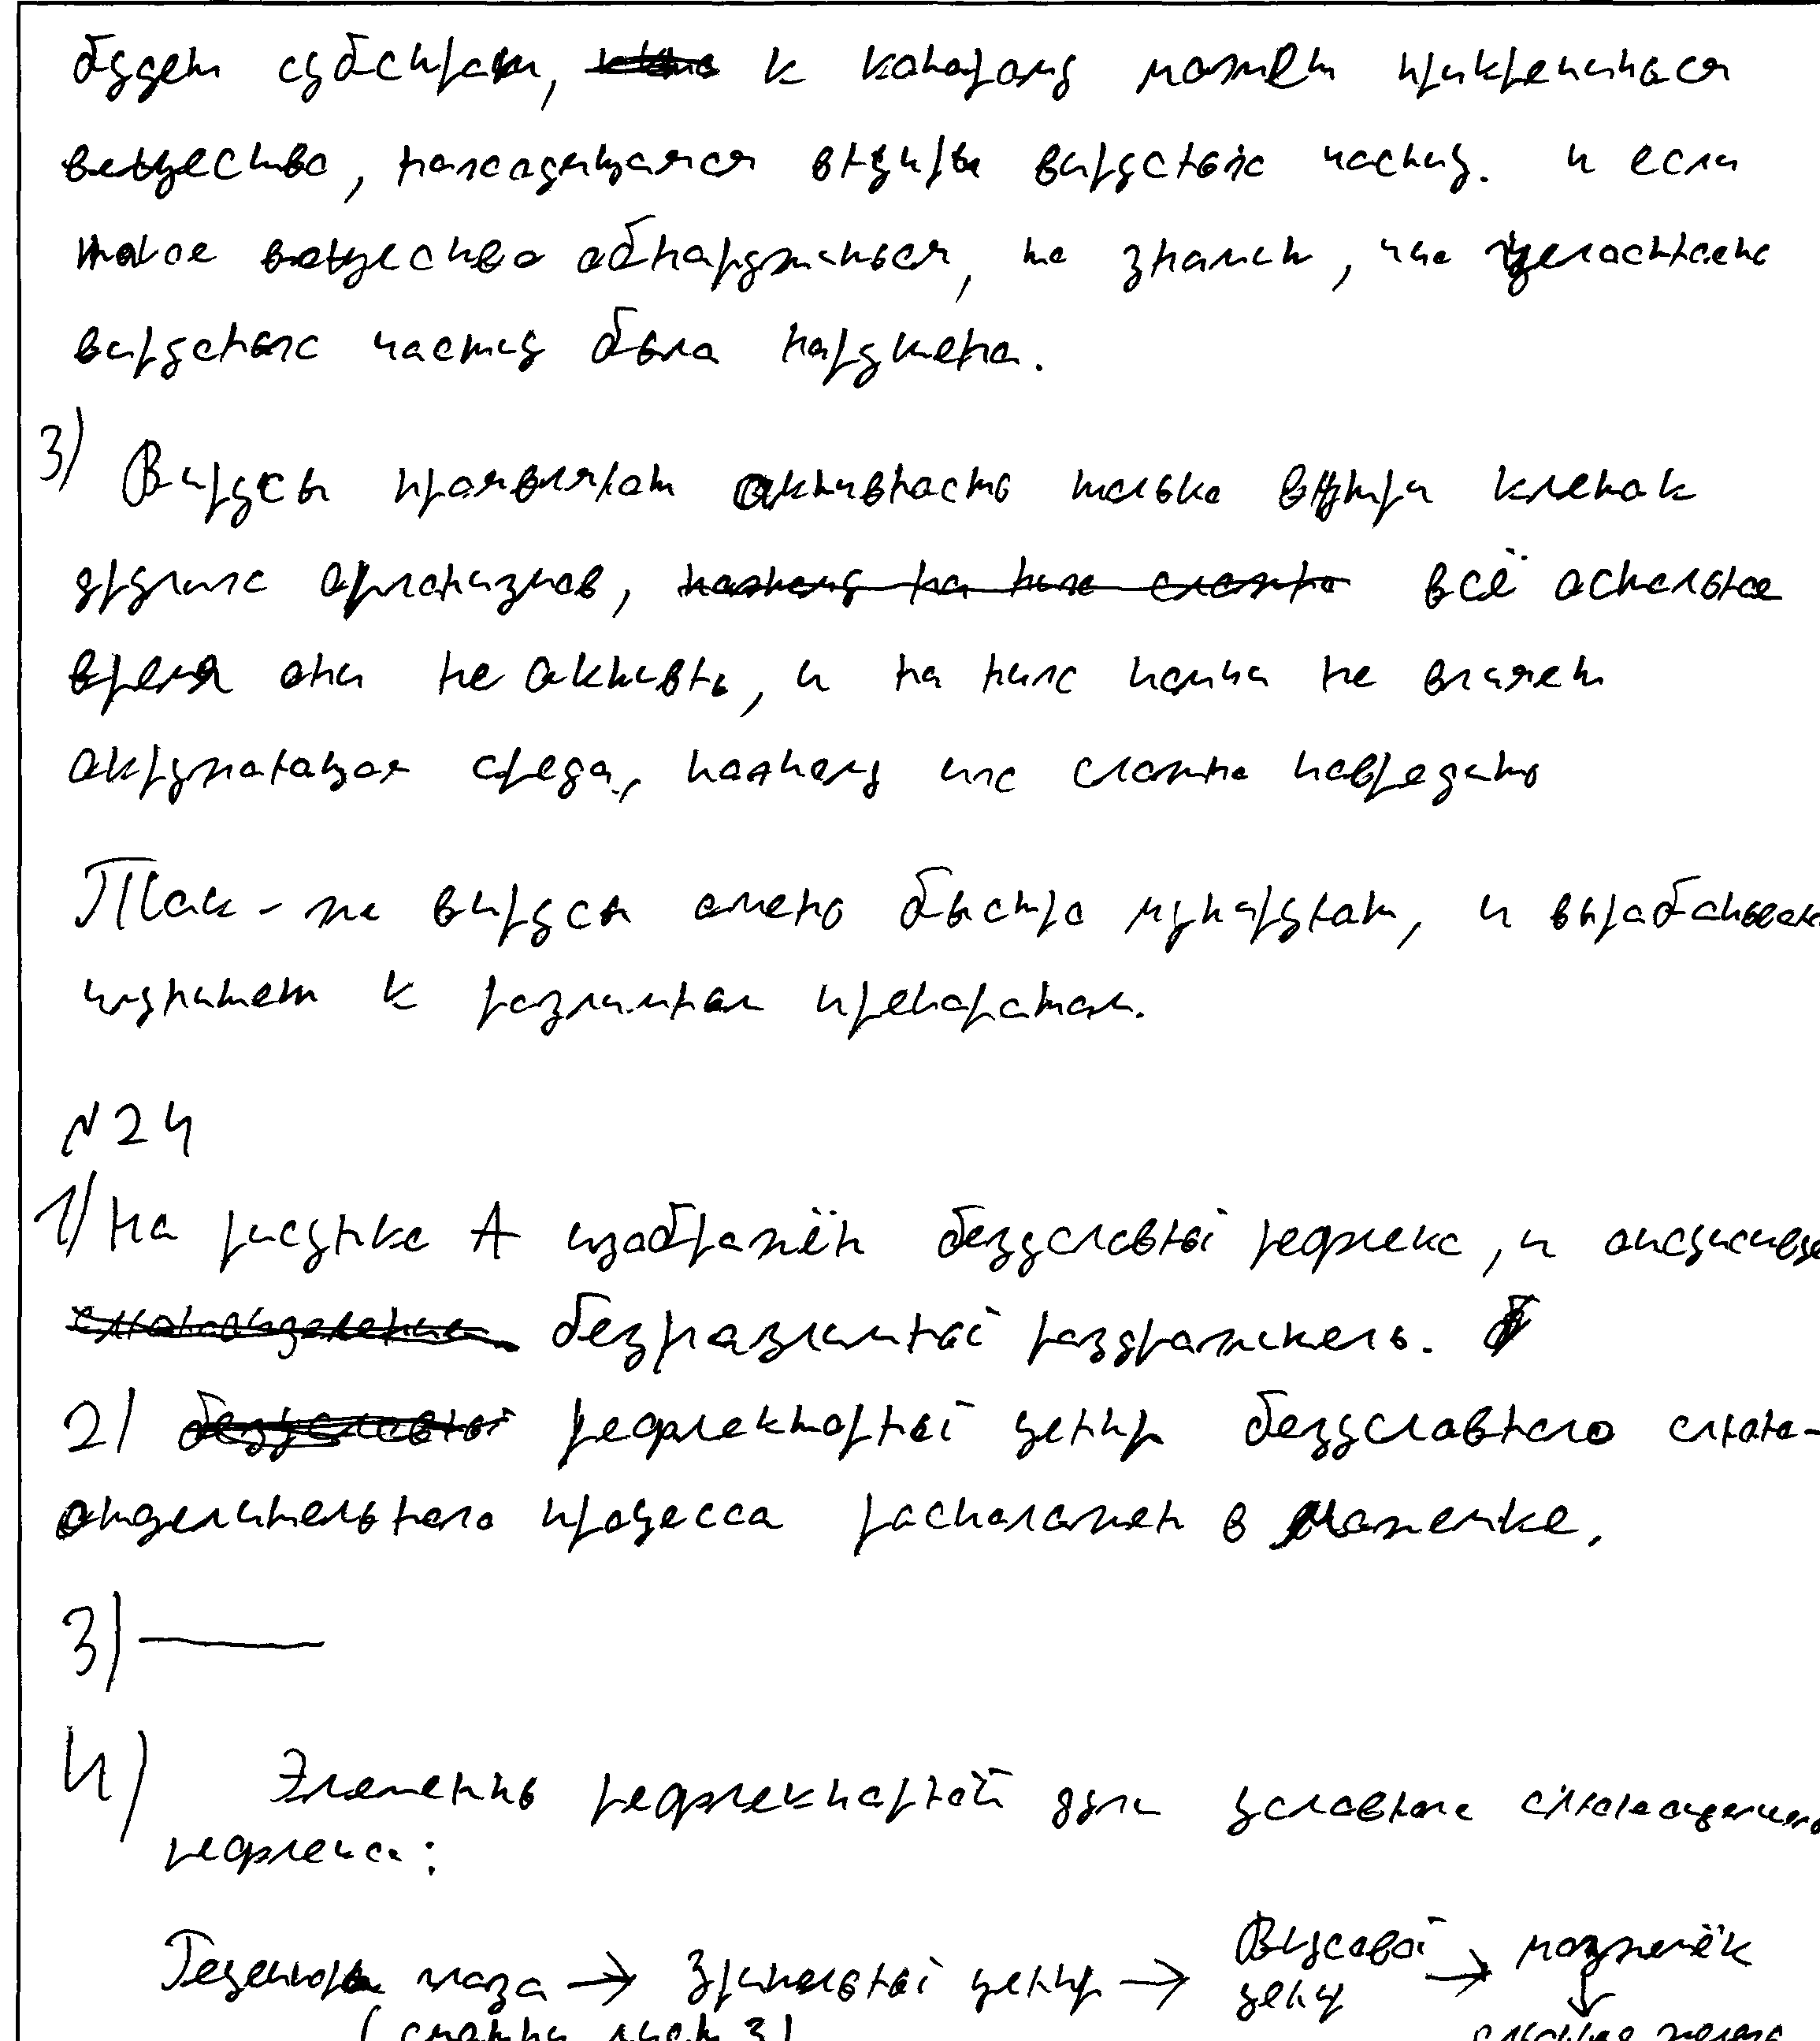 будет субстрат, к которому может прикрепиться
вещество, находящаяся внутри вирусных частиц. и если
такое вещество обнаружиться, то значит, что целостность
вирусных частиц была нарушена.
3) Вирусы проявляют активность только внутри клеток
других организмов, всё остальное
время они не активны, и на них почти не влияет
окружающая среда, поэтому их сложно повредить
Так-же вирусы очень быстро мутируют, и вырабатывают
иммунитет к различным препаратам.
№24
1) На рисунке А изображён безусловный рефлекс, и отсутствует
безразличный раздражитель.
2) рефлекторный центр безусловного слюно-
отделительного процесса расположен в мозжечке.
3) —
4) Элементы рефлекторной дуги условного
рефлекса:
Рецепторы глаза → Зрительный центр → Вкусовой центр → мозжечёк
↓
(смотри лист 3)